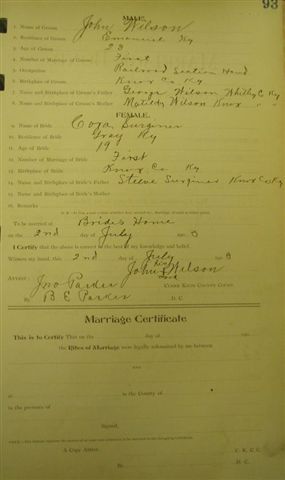 93
MALE.
1. Name of Groom John Wilson
2. Residence of Groom Emanuel Ky
3. Age of Groom 23
4. Number of Marriage of Groom First
5. Occupation Railroad Section Hand
6. Birthplace of Groom Knox Co Ky
7. Name and Birthplace of Groom's Father George Wilson Whitley Co Ky
8. Name and Birthplace of Groom's Mother Matilda Wilson Knox " "
FEMALE.
9. Name of Bride Cora Surginer
10. Residence of Bride Gray Ky
11. Age of Bride 19
12. Number of Marriage of Bride First
13. Birthplace of Bride Knox Co Ky
14. Name and Birthplace of Bride's Father Steele Surginer Knox Co Ky
15. Name and Birthplace of Bride's Mother
16. Remarks
To be married at Brides Home
on the 2nd day of July 190
I Certify that the above is correct to the best of my knowledge and belief.
Witness my hand, this 2nd day of July 190
John Wilson
Attest: Jno Parker Clerk Knox County Court.
By B E Parker D. C.
Marriage Certificate
This is to Certify That on the day of 190
the Rites of Marriage were legally solemnized by me between
and
at in the County of
in the presence of
Signed,
A Copy Attest: C. K. C. C.
By D. C.